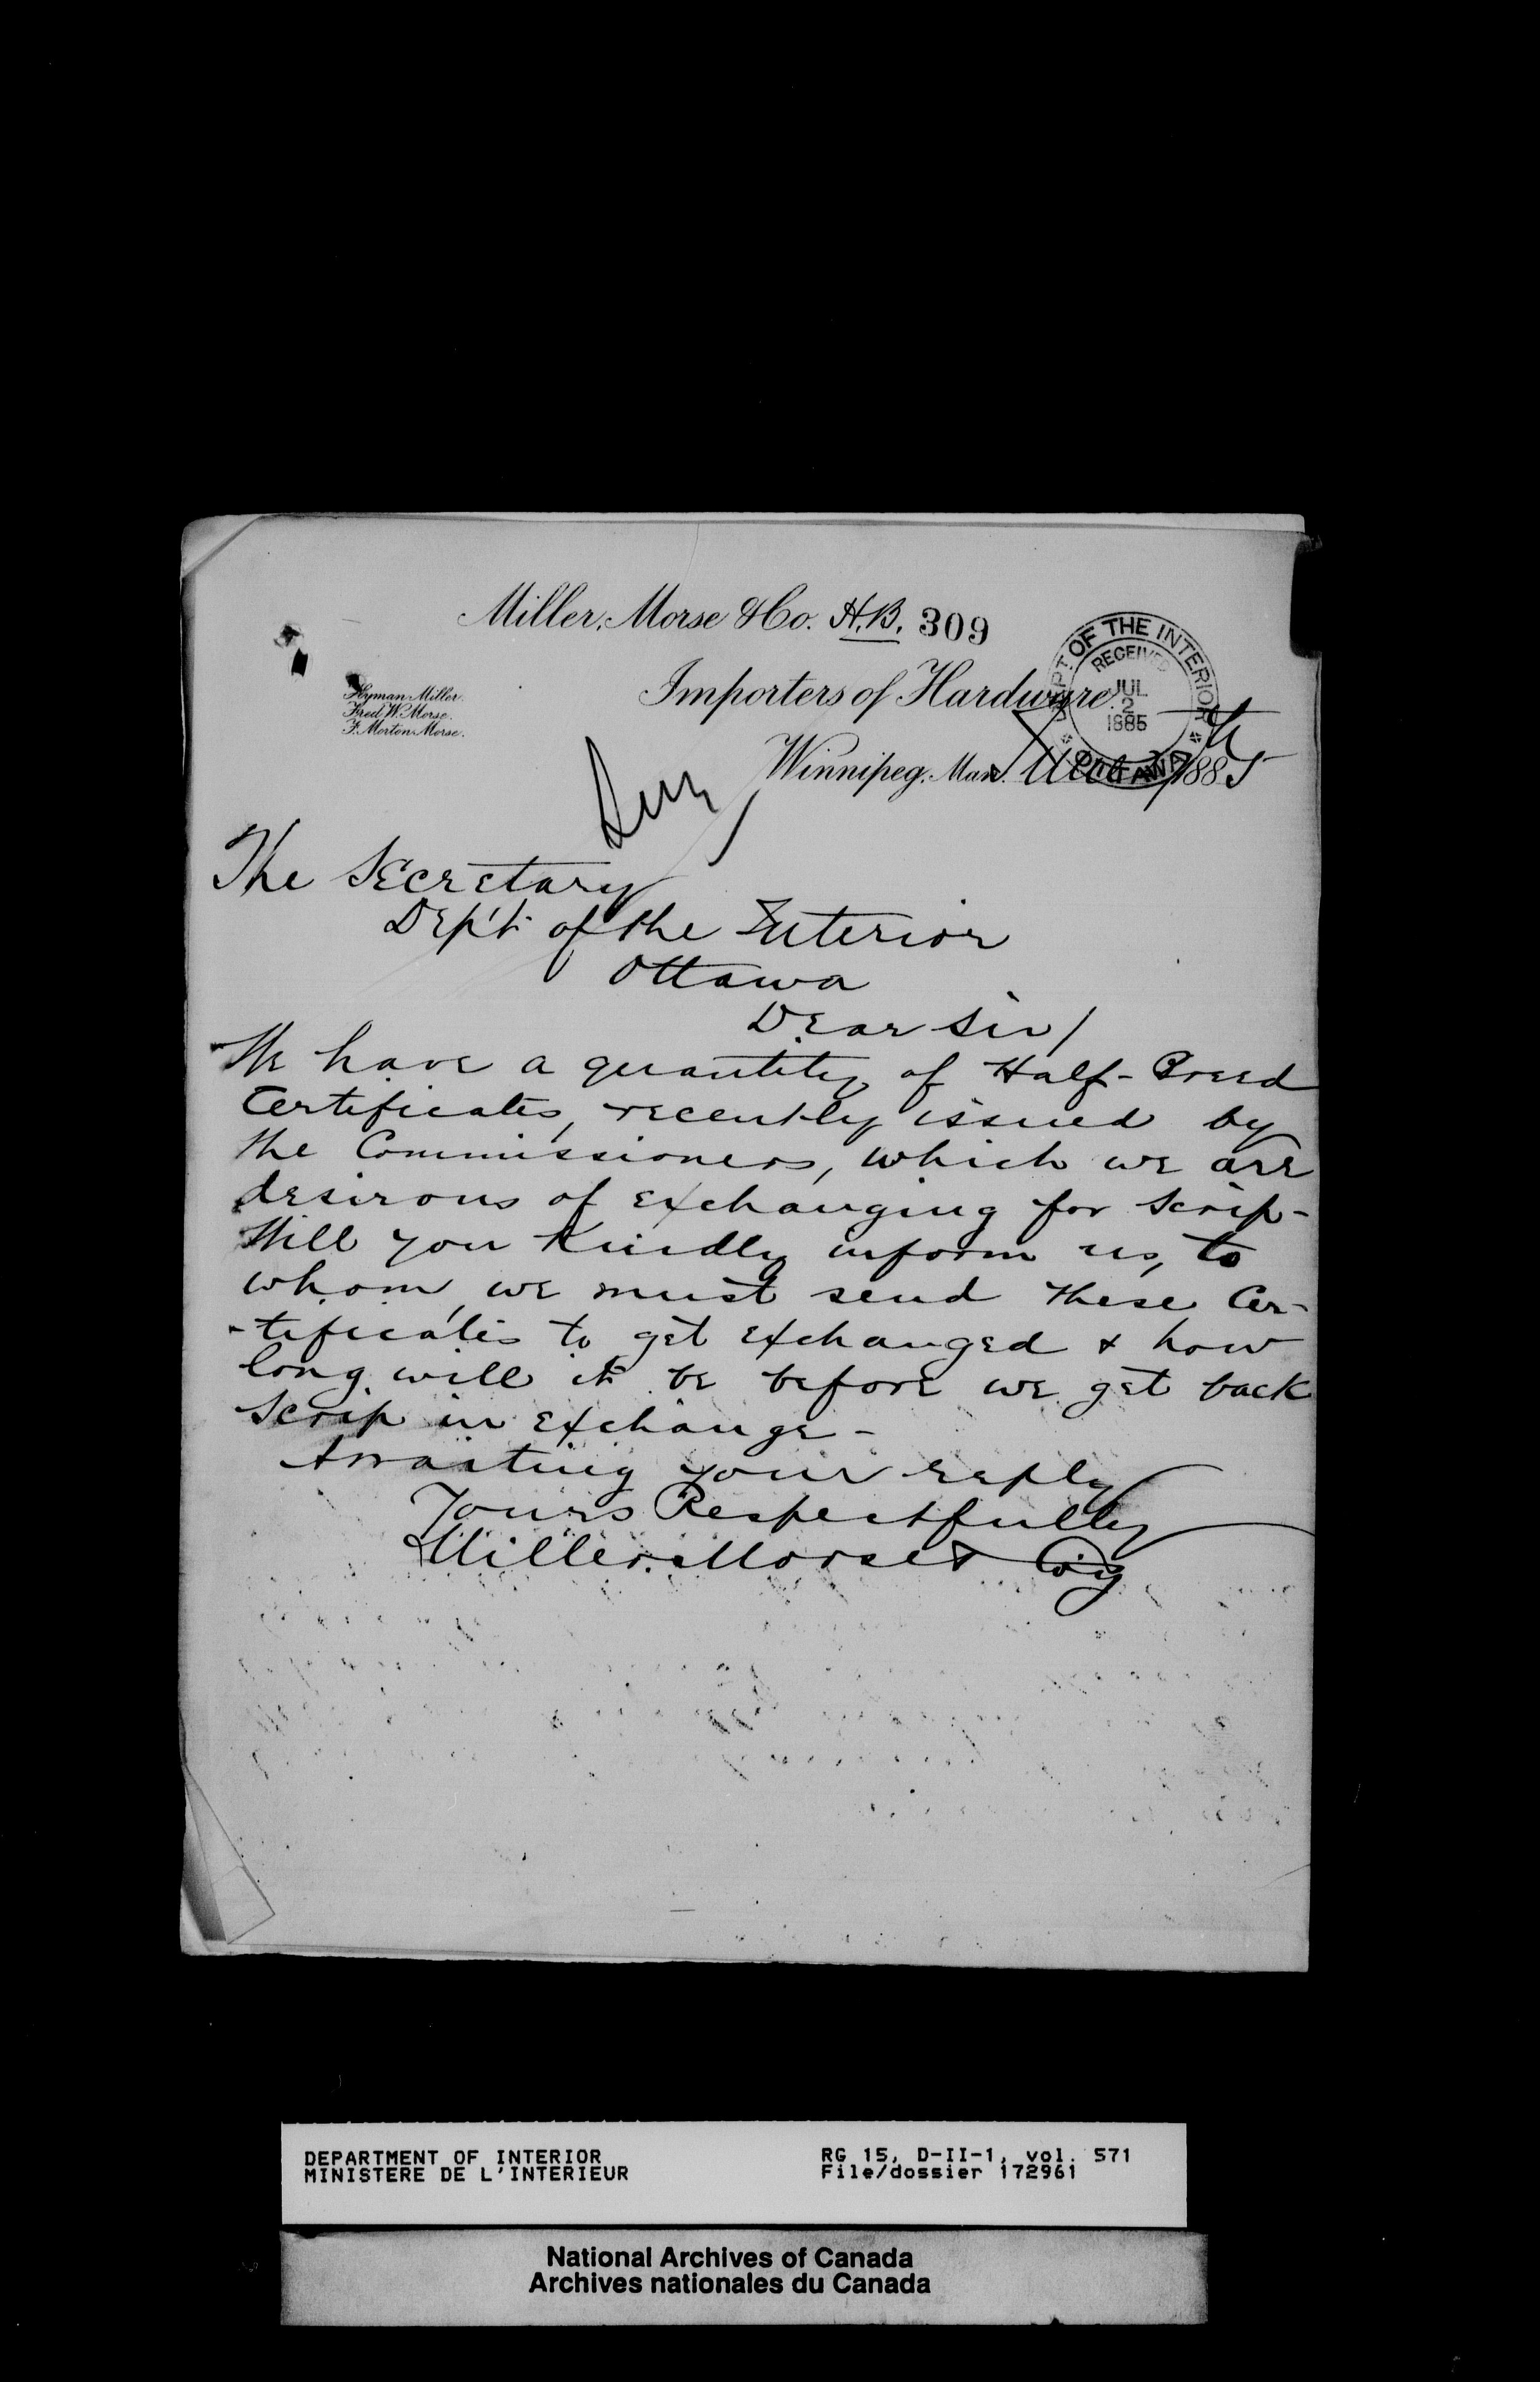 Miller, Morse & Co. H.B. 309
Importers of Hardware.
DEPT. OF THE INTERIOR
RECEIVED
JUL
2
1885
OTTAWA
Hyman Miller.
Fred W. Morse.
F. Morton Morse.
Winnipeg, Man. 1885
The Secretary
Dep't of the Interior
Ottawa
Dear Sir/
We have a quantity of Half-Breed
Certificates, recently issued by
the Commissioners, which we are
desirous of exchanging for Scrip-
Will you Kindly inform us, to
whom we must send these Cer-
-tificates to get exchanged & how
long will it be before we get back
Scrip in exchange-
Awaiting your reply
Yours Respectfully
Miller. Morse & Coy
DEPARTMENT OF INTERIOR
MINISTERE DE L'INTERIEUR
RG 15, D-II-1, vol. 571
File/dossier 172961
National Archives of Canada
Archives nationales du Canada